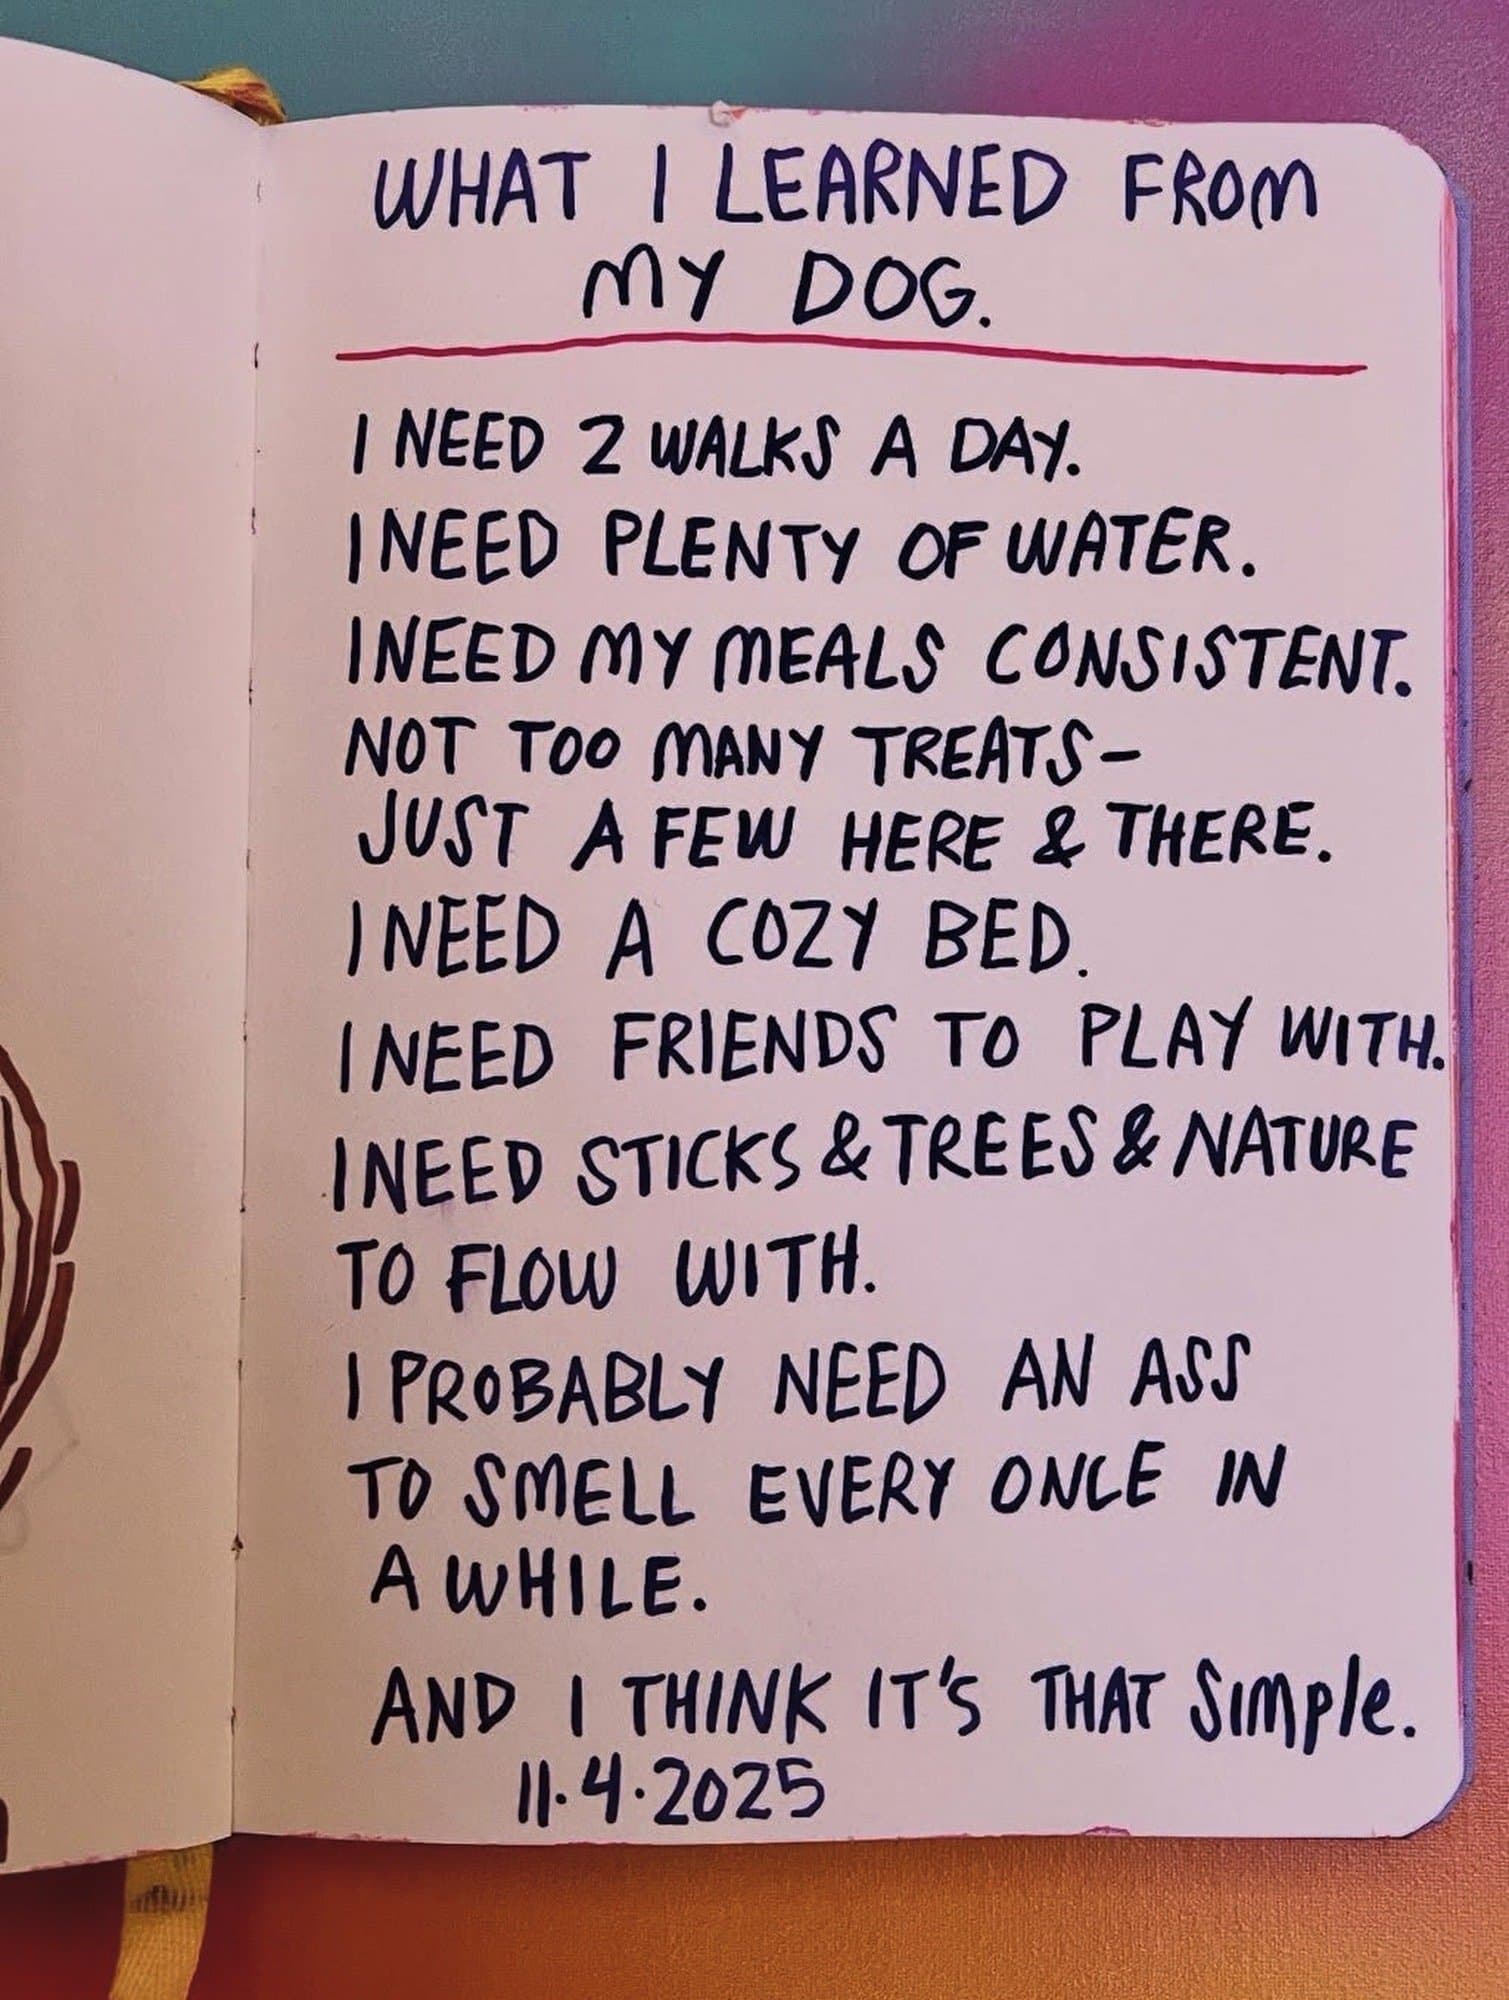 WHAT I LEARNED FROM
MY DOG.
I NEED 2 WALKS A DAY.
I NEED PLENTY OF WATER.
I NEED MY MEALS CONSISTENT.
NOT TOO MANY TREATS-
JUST A FEW HERE & THERE.
I NEED A COZY BED.
I NEED FRIENDS TO PLAY WITH.
I NEED STICKS & TREES & NATURE
TO FLOW WITH.
I PROBABLY NEED AN ASS
TO SMELL EVERY ONCE IN
A WHILE.
AND I THINK IT'S THAT SIMPLE.
11.4.2025